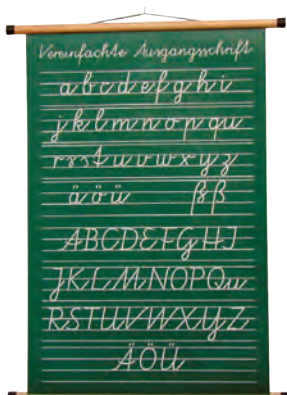 Vereinfachte Ausgangsschrift
a b c d e f g h i
j k l m n o p qu
r s t u v w x y z
ä ö ü ß ß
A B C D E F G H I
J K L M N O P Qu
R S T U V W X Y Z
Ä Ö Ü